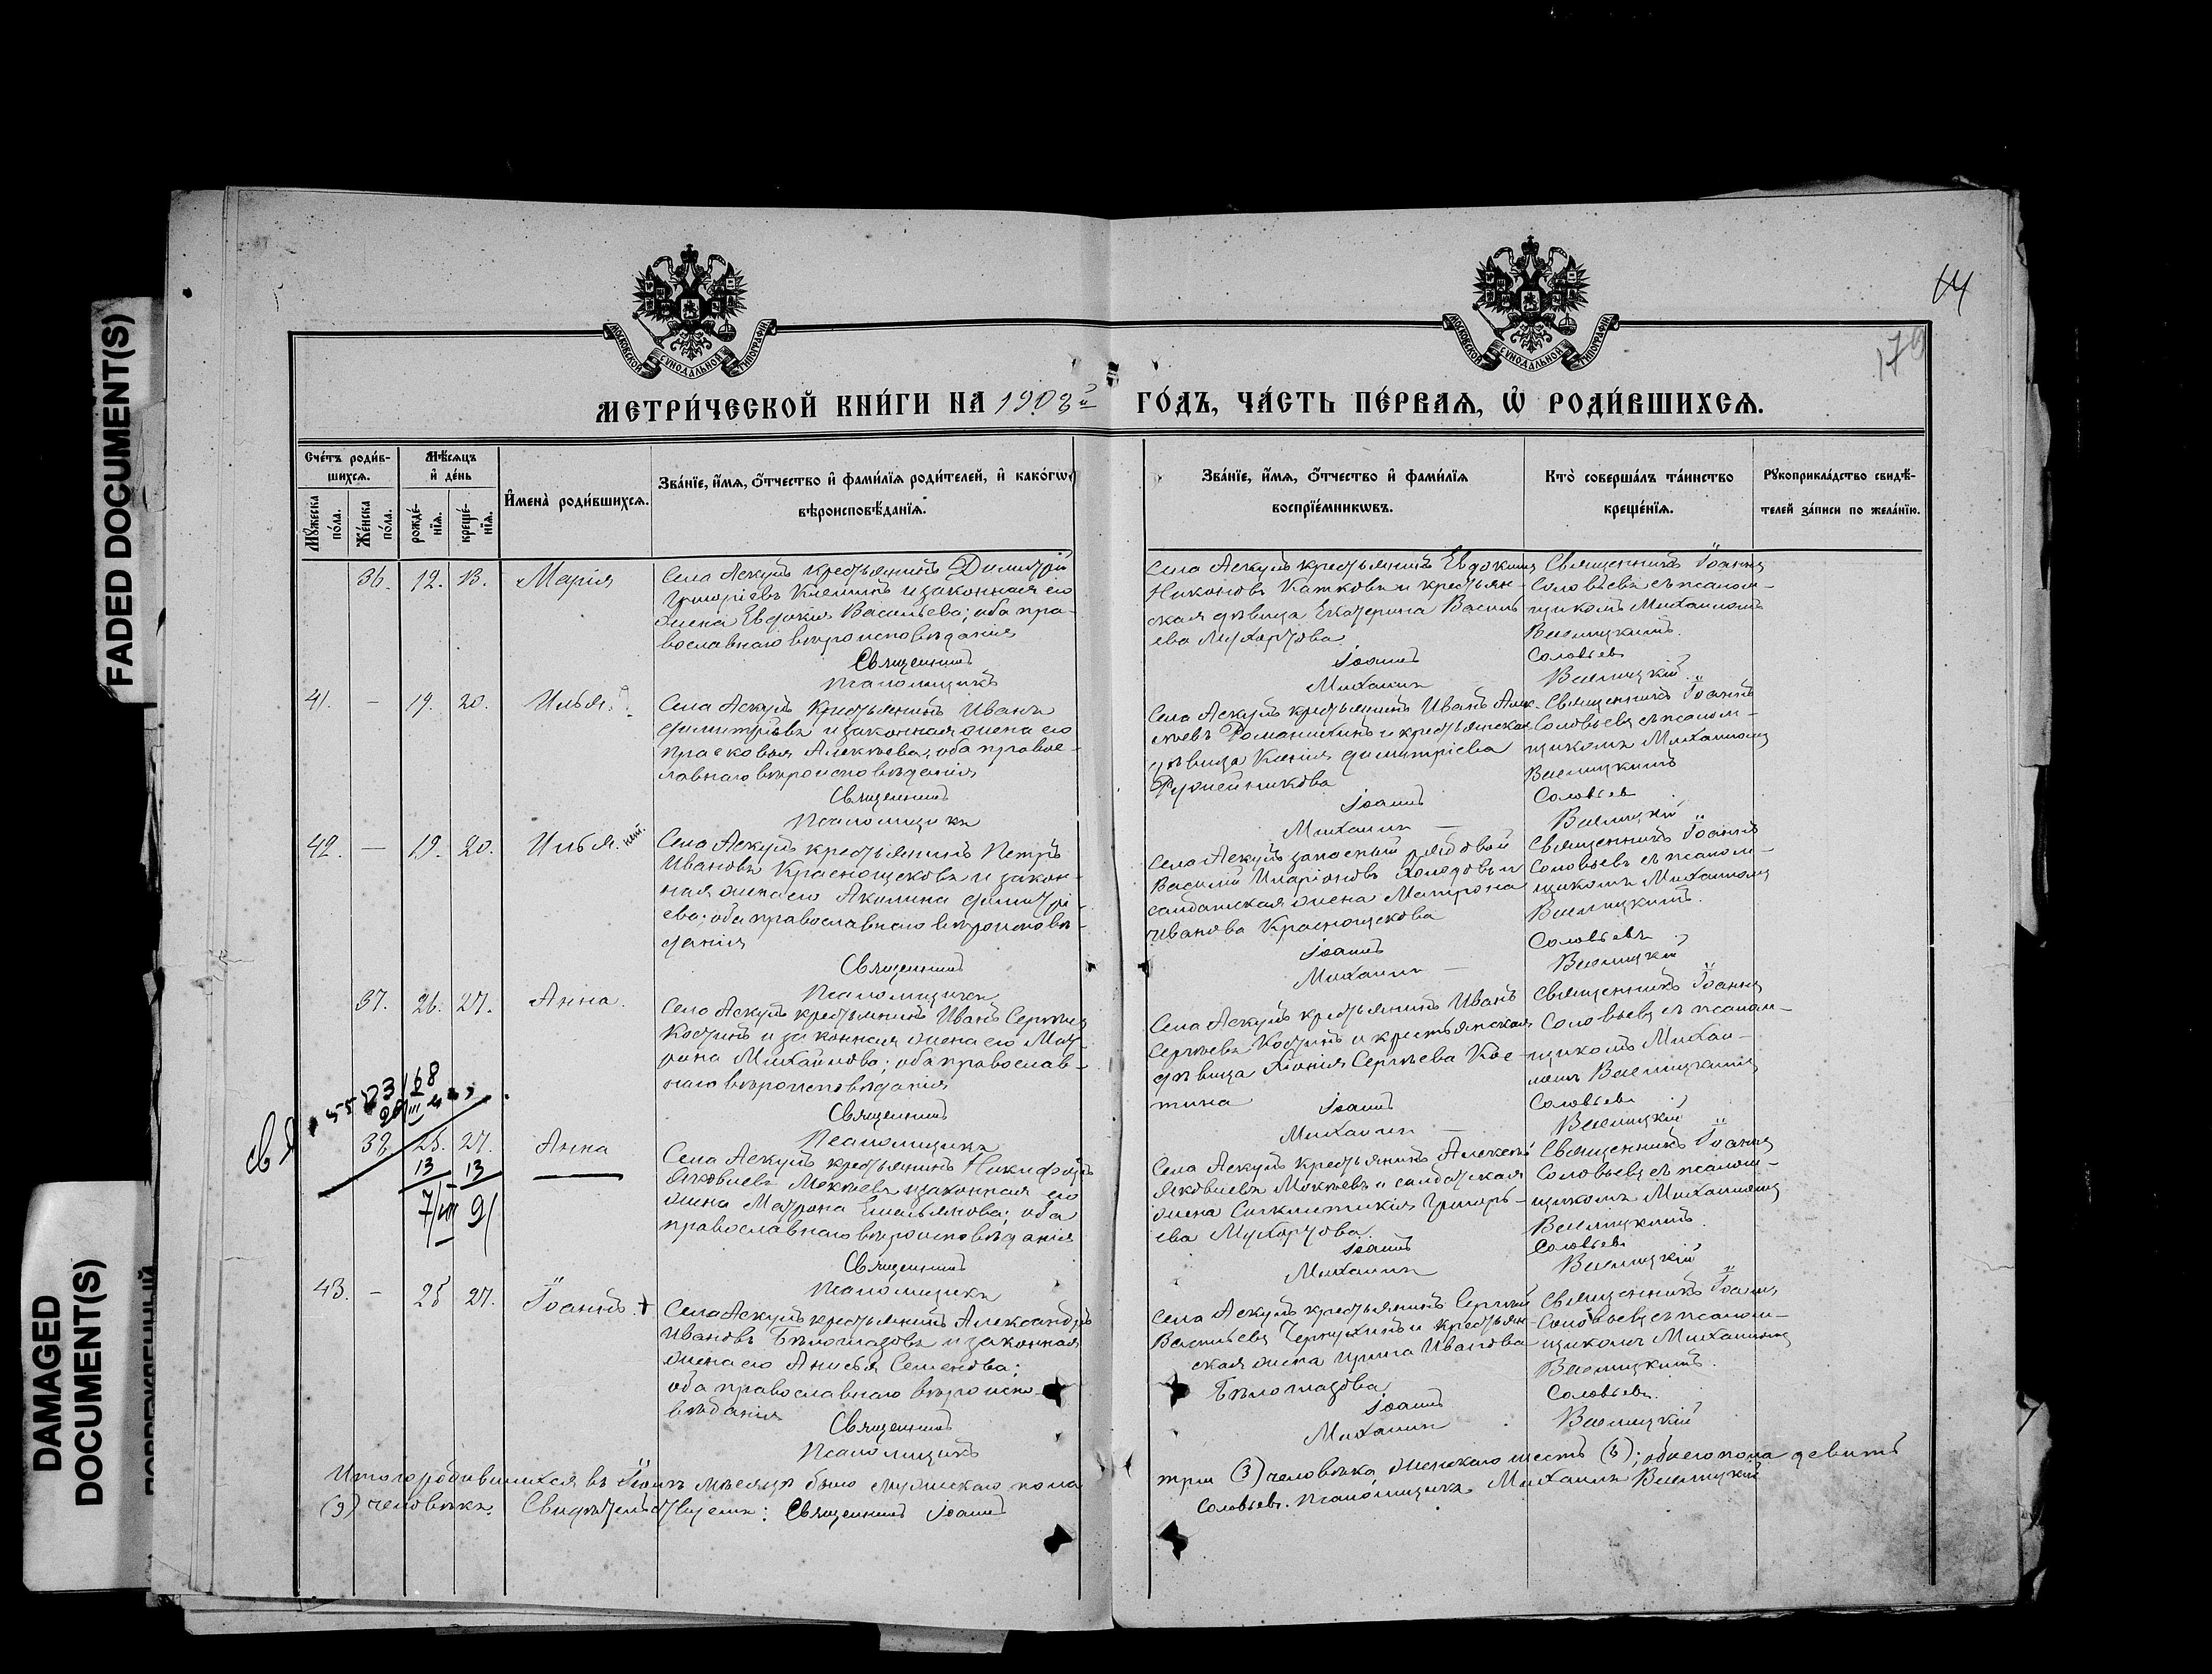 FADED DOCUMENT(S)
DAMAGED
DOCUMENT(S)
14
179
МОСКОВСКОЙ СѴНОДАЛЬНОЙ ТИПОГРАФІИ
МОСКОВСКОЙ СѴНОДАЛЬНОЙ ТИПОГРАФІИ
МЕТРИ́ЧЕСКОЙ КНИ́ГИ НА 1908й ГО́ДЪ, ЧА́СТЬ ПЕ́РВАѦ, Ѡ҆ РОДИ́ВШИХСѦ.
Сче́тъ роди́в-
шихсѧ.
Мꙋ́жеска
по́ла.
Же́нска
по́ла.
Мѣ́сѧцъ
и҆ де́нь
рожде́-
нїѧ.
креще́-
нїѧ.
И҆мена̀ роди́вшихсѧ.
Зва́нїе, и҆́мѧ, ѻ҆́тчество и҆ фами́лїѧ роди́телей, и҆ како́гѡ
вѣроисповѣ́данїѧ.
Зва́нїе, и҆́мѧ, ѻ҆́тчество и҆ фами́лїѧ
воспрїе́мникѡвъ.
Кто̀ соверша́лъ та́инство
креще́нїѧ.
Рꙋкоприкла́дство свидѣ́-
телей за́писи по жела́нїю.
36. 12. 13. Марія
Села Аскулъ крестьянинъ Димитрій
Григоріевъ Клешинъ и законная его
жена Евдокія Васильева; оба пра-
вославнаго вѣроисповѣданія
Священникъ
Псаломщикъ
Села Аскулъ крестьянинъ Евдокимъ
Никоновъ Катковъ и крестьян-
ская дѣвица Екатерина Василь
ева Мухортова
Іоаннъ
Михаилъ
Священникъ Іоаннъ
Соловьевъ съ псалом-
щикомъ Михаиломъ
Соловьевъ
41. – 19. 20. Илья.
Села Аскулъ крестьянинъ Иванъ
Димитріевъ и законная жена его
Прасковья Алексѣева; оба правос-
лавнаго вѣроисповѣданія
Священникъ
Псаломщикъ
Села Аскулъ крестьянинъ Иванъ Алек-
сѣевъ Романихинъ и крестьянская
дѣвица Ксенія Димитріева
Ружейникова
Іоаннъ
Михаилъ
Священникъ Іоаннъ
Соловьевъ съ псалом-
щикомъ Михаиломъ
Соловьевъ
42. – 19. 20. Илья.
Села Аскулъ крестьянинъ Петръ
Ивановъ Краснощековъ и закон-
ная жена его Акилина Димитрі-
ева; оба православнаго вѣроисповѣ-
данія
Священникъ
Псаломщикъ
Села Аскулъ запасный рядовой
Василій Иларіоновъ Холодовъ и
солдатская жена Матрона
Иванова Краснощекова
Іоаннъ
Михаилъ
Священникъ Іоаннъ
Соловьевъ съ псалом-
щикомъ Михаиломъ
Соловьевъ
37. 26. 27. Анна.
Села Аскулъ крестьянинъ Иванъ Сергѣевъ
Костинъ и законная жена его Мат
рона Михайлова; оба православ-
наго вѣроисповѣданія
Священникъ
Псаломщикъ
Села Аскулъ крестьянинъ Иванъ
Сергѣевъ Костинъ и крестьянская
дѣвица Хіонія Сергѣева Кос-
тина
Іоаннъ
Михаилъ
Священникъ Іоаннъ
Соловьевъ съ псалом-
щикомъ Михаи-
ломъ
Соловьевъ
38. 25. 27. Анна
13 13
7/VII 9/
Села Аскулъ крестьянинъ Никифоръ
Яковлевъ Мокѣевъ и законная его
жена Матрона Емельянова; оба
православнаго вѣроисповѣданія
Священникъ
Псаломщикъ
Села Аскулъ крестьянинъ Алексѣй
Яковлевъ Мокѣевъ и солдатская
жена Синклитикія Григорь-
ева Мухортова
Іоаннъ
Михаилъ
Священникъ Іоаннъ
Соловьевъ съ псалом-
щикомъ Михаиломъ
Соловьевъ
43. – 25 27. Іоаннъ. +
Села Аскулъ крестьянинъ Александръ
Ивановъ Бѣлоглазовъ и законная
жена его Анисья Семенова;
оба православнаго вѣроиспо-
вѣданія
Священникъ
Псаломщикъ
Села Аскулъ крестьянинъ Сергѣй
Васильевъ Чернухинъ и крестьян-
ская жена Ирина Иванова
Бѣлоглазова
Іоаннъ
Михаилъ
Священникъ Іоаннъ
Соловьевъ съ псалом-
щикомъ Михаиломъ
Соловьевъ.
Итого родившихся въ Іюлѣ мѣсяцѣ было мужскаго пола три (3) человѣка, женскаго шесть (6); обоего пола девять
(9) человѣкъ. Свидѣтельствуемъ: Священникъ Іоаннъ Соловьевъ. Псаломщикъ Михаилъ